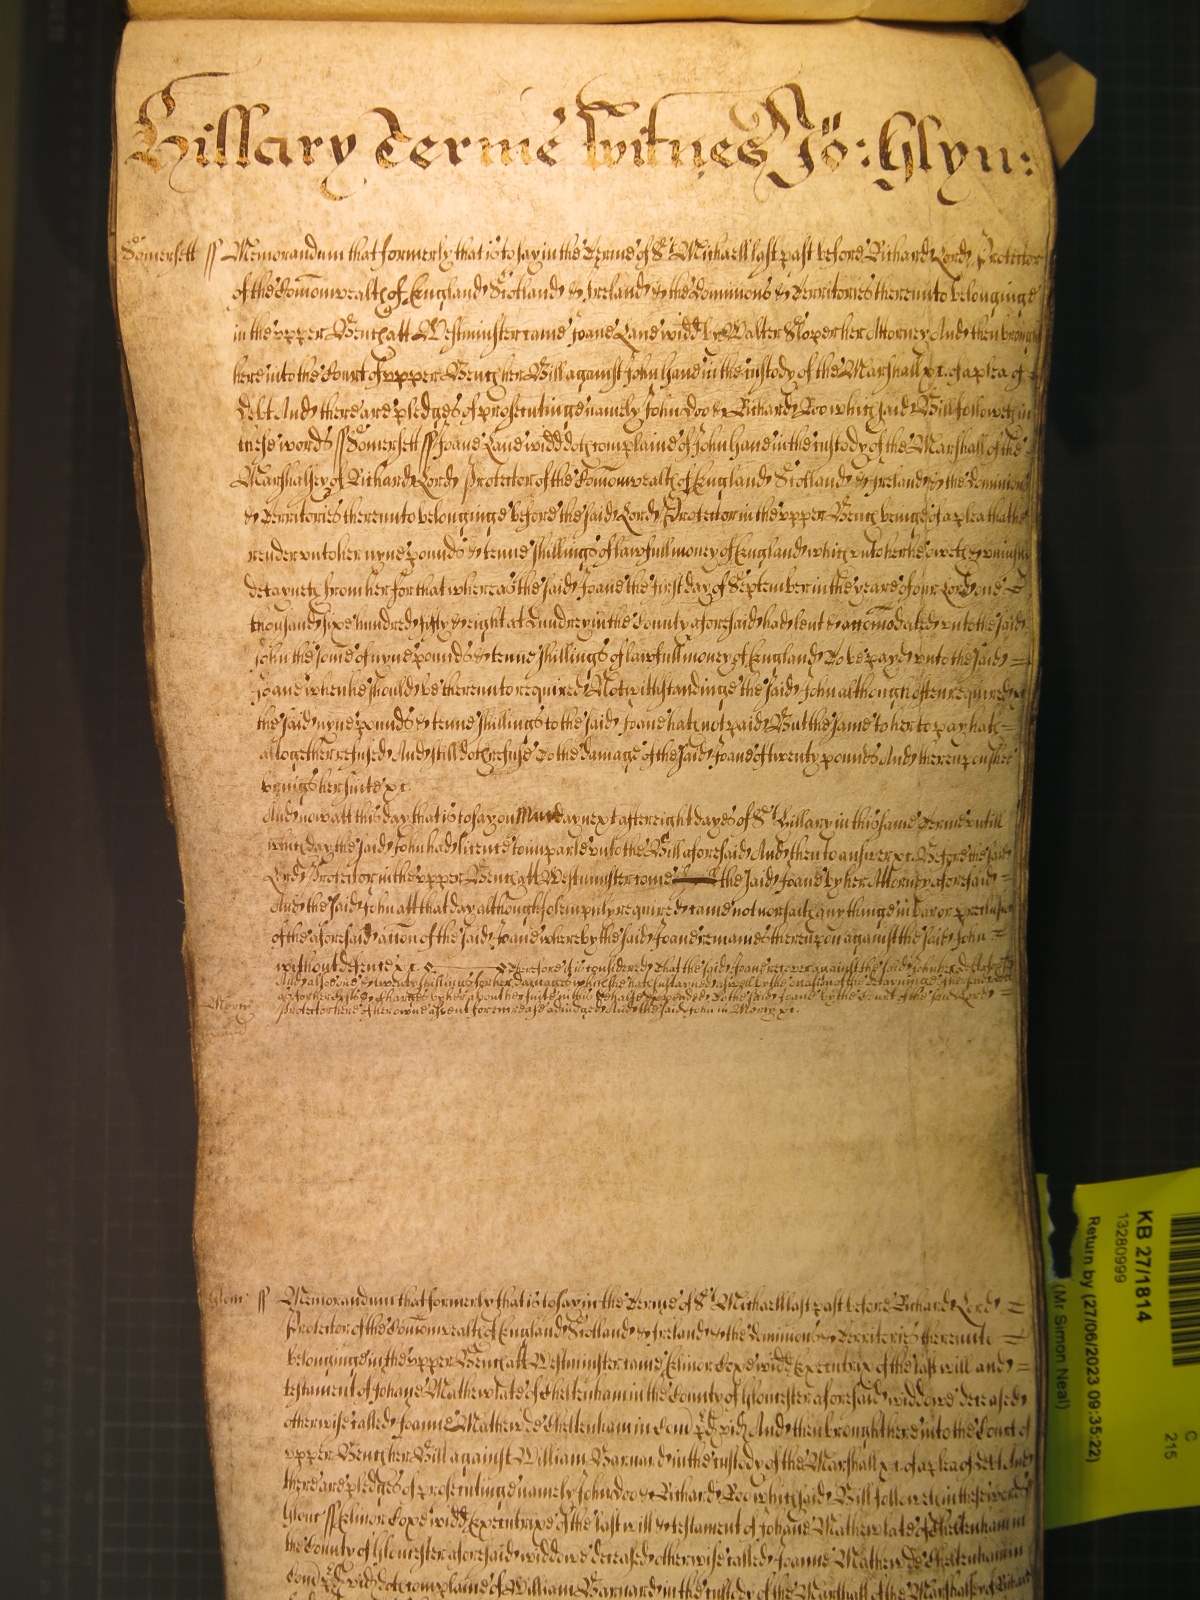 Hillary Terme witnes Jo: Glyn:
Somersett ss Memorandum that formerly that is to say in the Terme of St Michaell last past before Richard Lord Protector
of the Comonwealth of England Scotland & Ireland & the Dominions & Territories thereunto belonginge
in the upper Bench att Westminster came Joane Lane widd by Walter Sloper her Attorney And then brought
here into the Court of upper Bench her Bill against John hand in the custody of the Marshall &c. of a plea of
Debt And there are pledges of prosecutinge namely John Doo & Richard Roo which said Bill followeth in
these words ss Somersett ss Joane Lane widd doth complaine of John hand in the custody of the Marshall of the
Marshalsey of Richard Lord Protector of the Comonwealth of England Scotland & Ireland & the Dominions
& Territories thereunto belonginge before the said Lord Protector in the upper Bench beinge of a plea that he
render unto her nyne pounds & tenne shillings of lawfull money of England which unto her he oweth & uniustly
detayneth from her For that whereas the said Joane the first day of September in the yeare of our Lord one
thousand sixe hundred fifty & eight at in the County aforesaid had lent & accomodated unto the said
John the some of nyne pounds & tenne shillings of lawfull money of England To be payd unto the said
Joane when he should be thereunto required Notwithstandinge the said John although often required
the said nyne pounds & tenne shillings to the said Joane hath not paid But the same to her to pay hath
altogether refused And still doth refuse To the damage of the said Joane of twenty pounds And thereupon shee
brings her suite &c
And now att this day that is to say on Munday next after eight dayes of St Hillary in this same Terme untill
which day the said John had licence to imparle unto the Bill aforesaid And then to answer &c. Before the said
Lord Protector in the upper Bench att Westminster come the said Joane by her Attorney aforesaid
And the said John att that day although solempnly required came not nor saith any thinge in bar or preclusion
of the aforesaid accion of the said Joane whereby the said Joane remaines thereupon against the said John
without defence &c. Therefore it is considered that the said Joane recover against the said John her debt aforesaid
And alsoe one & twenty shillings for her Damages which she hath sustayned aswell by the occasion of the detayninge
Mercy as for her costs & charges by her about her suite in this behalfe expended To the said Joane by the Court of the said Lord
Protector here of her owne assent for encrease adiudged And the said John in Mercy &c.
Glouc ss Memorandum that formerly that is to say in the Terme of St Michaell last past before Richard Lord
Protector of the Comonwealth of England Scotland & Ireland & the dominions & Territories thereunto
belonginge in the upper Bench att Westminster came Elinor Coxe widd Executrix of the last will and
testament of Johane Mathew late of Cheltenham in the County of Gloucester aforesaid widdowe deceased
otherwise called Joanne Mathew de Cheltenham in Com And then brought here into the Court of
upper Bench her Bill against William Barnard in the custody of the Marshall &c. of a plea of debt And
there are pledges of prosecutinge namely John doo & Richard Roo which said Bill followeth in these words
Glouc ss Elinor Coxe widd Executrixe of the last will & testament of Johane Mathew late of Cheltenham in
the County of Gloucester aforesaid widdowe deceased otherwise called Joanne Mathew de Cheltenham in
Com doth complaine of William Barnard in the custody of the Marshall of the Marshalsey of Richard
KB 27/1814
13280999
Return by (27/06/2023 09:35:22)
(Mr Simon Neal)
C
215